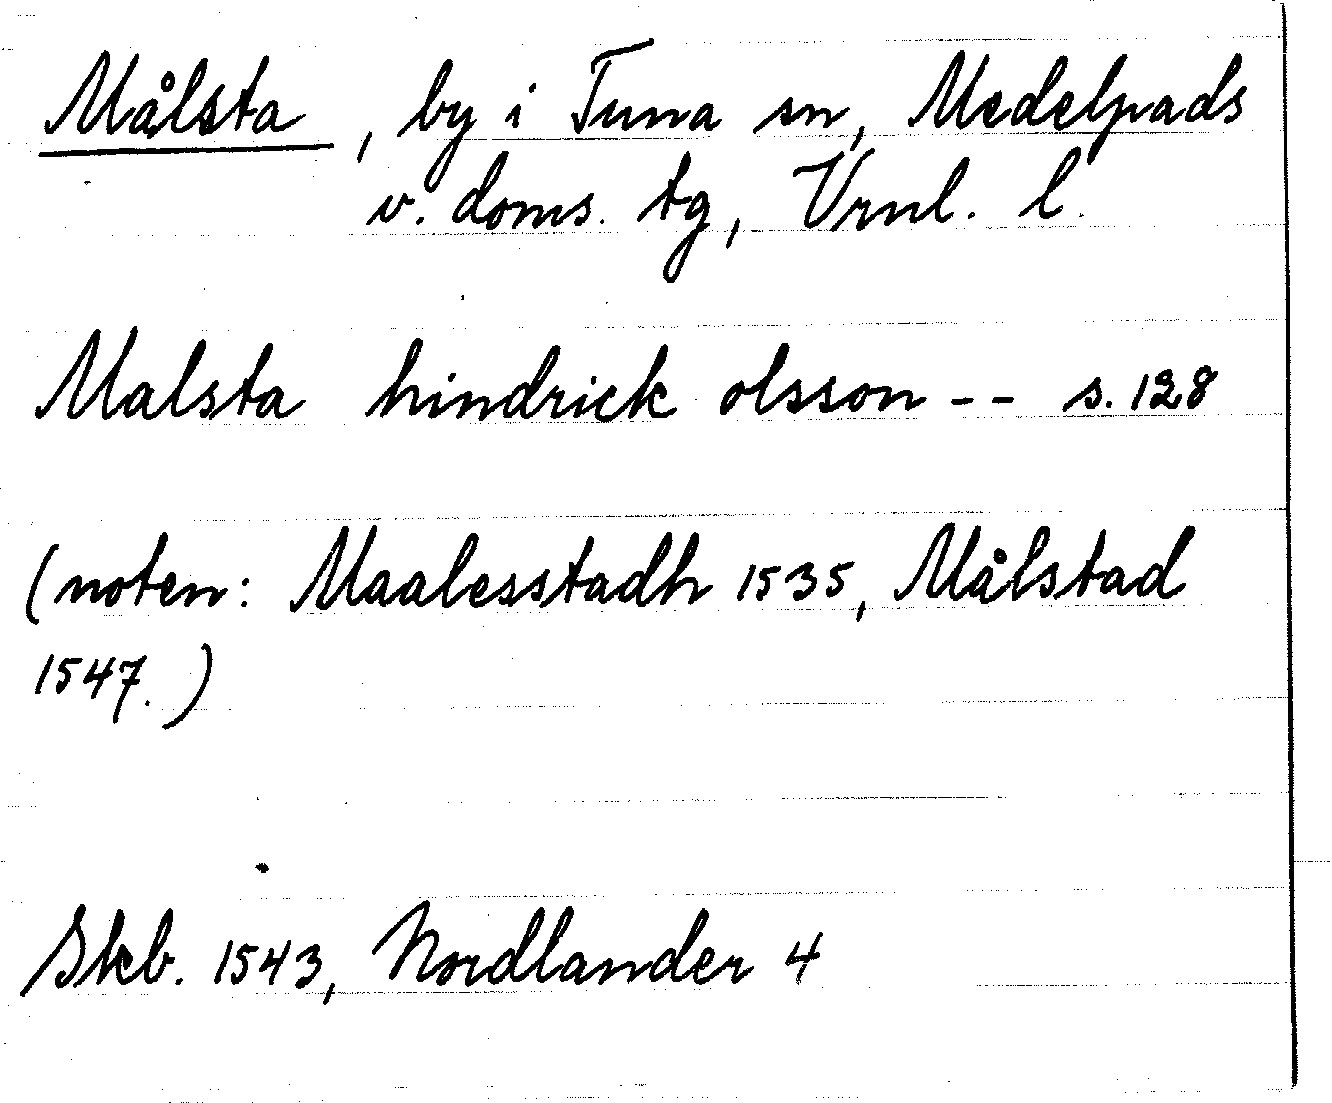 Målsta, by i Tuna sn, Medelpads
v. doms. tg, Vrnl. l.
Malsta hindrick olsson -- s. 128
(noten: Maalesstadh 1535, Målstad
1547.)
Skb. 1543, Nordlander 4